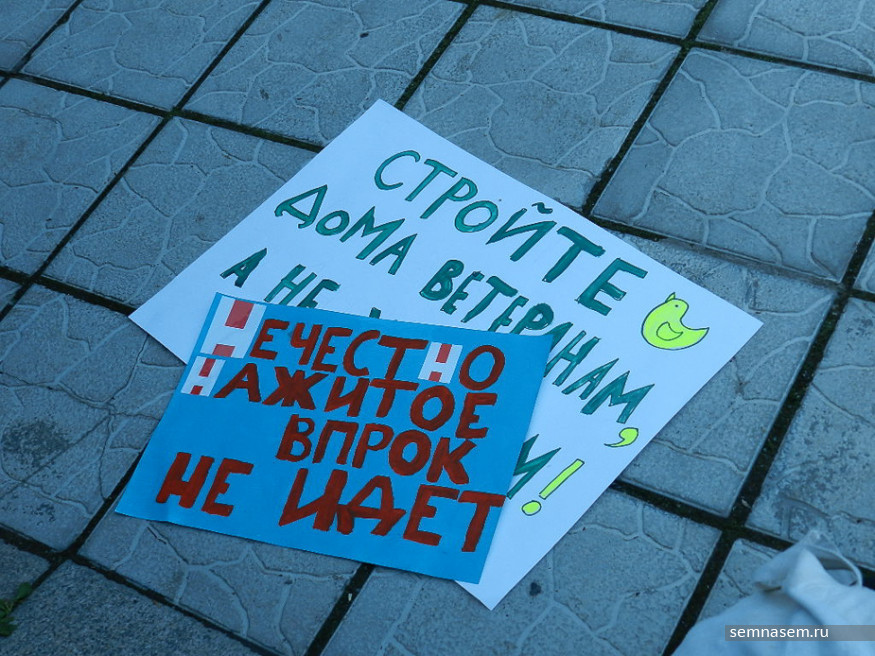 СТРОЙТЕ
ДОМА ВЕТЕРАНАМ,
А НЕ
НЕЧЕСТНО
НАЖИТОЕ
ВПРОК
НЕ ИДЕТ
semnasem.ru